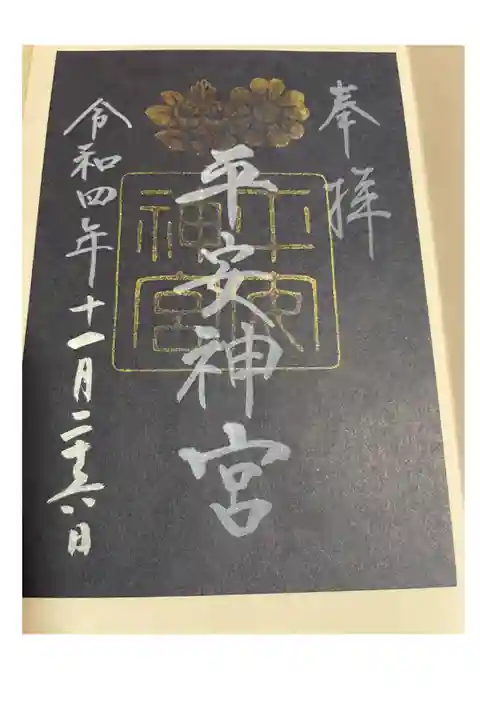 奉拝
平安神宮
平安神宮
令和四年十一月二十六日